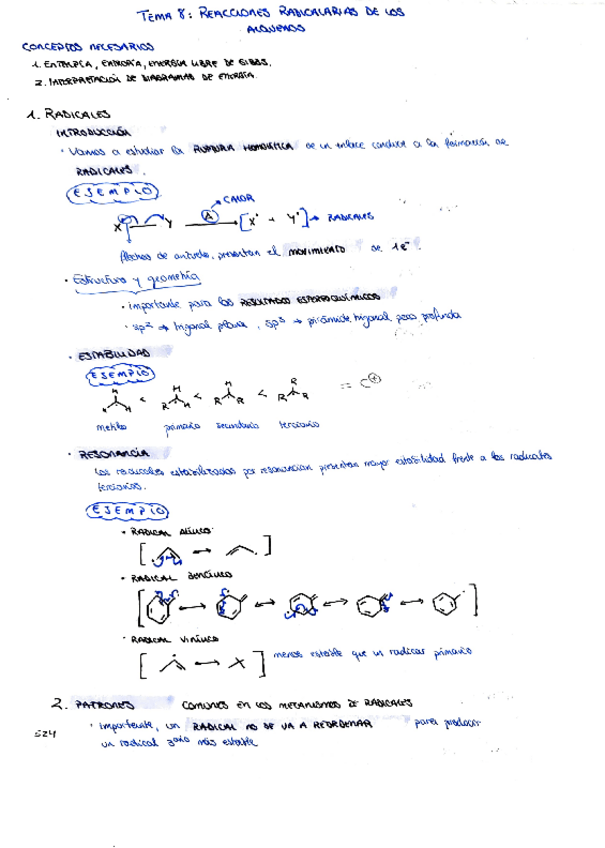 TEMA 8: REACCIONES RADICALARIAS DE LOS
ALQUENOS
CONCEPTOS NECESARIOS
1. ENTALPÍA, ENTROPÍA, ENERGÍA LIBRE DE GIBBS.
2. INTERPRETACIÓN DE DIAGRAMAS DE ENERGÍA.
1. RADICALES
INTRODUCCIÓN
· Vamos a estudiar la RUPTURA HOMOLÍTICA de un enlace conduce a la formación de
RADICALES.
EJEMPLO
CALOR
X Y Δ [X· + Y·] → RADICALES
flechas de anzuelo, presentan el MOVIMIENTO de 1e-.
· Estructura y geometría
· importante para los RESULTADOS ESTEREOQUÍMICOS
· sp2 → trigonal plana, sp3 → pirámide trigonal poco profunda
· ESTABILIDAD
EJEMPLO
H H H R
H H < R H < R R < R R == C⊕
metilo primario secundario terciario
· RESONANCIA
Los radicales estabilizados por resonancia presentan mayor estabilidad frente a los radicales
terciarios.
EJEMPLO
· RADICAL ALÍLICO:
· RADICAL BENCÍLICO
· RADICAL VINÍLICO
menos estable que un radical primario
2. PATRONES COMUNES EN LOS MECANISMOS DE RADICALES
· importante, un RADICAL NO SE VA A REORDENAR para producir
524
un radical 3ario más estable